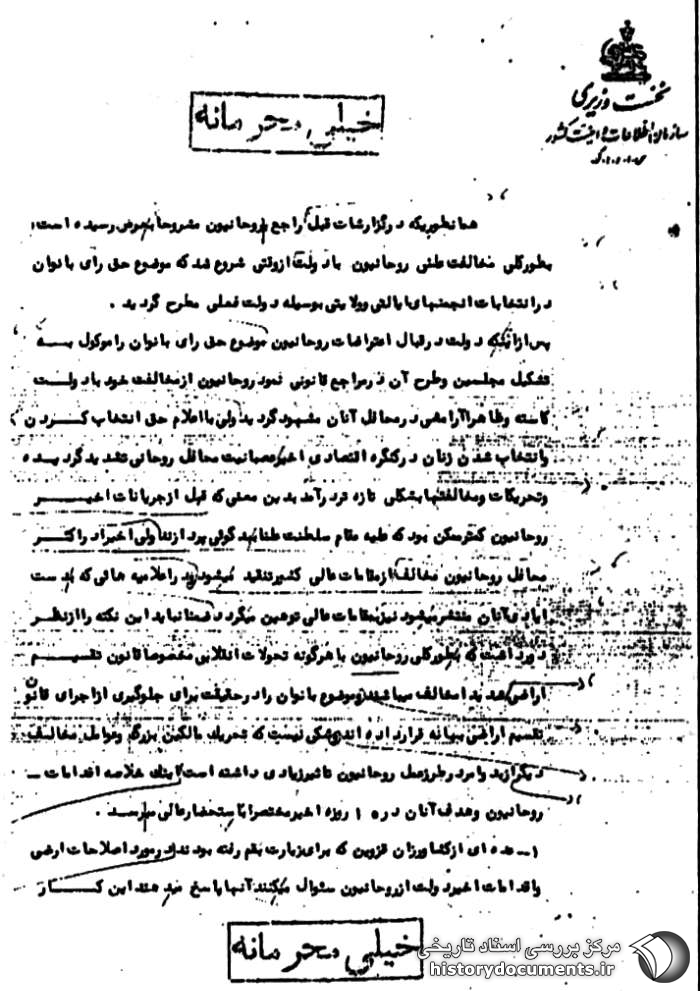 نخست وزیری
سازمان اطلاعات و امنیت کشور
س.ا.و.ا.ک
خیلی محرمانه
همانطوریکه در گزارشات قبل راجع بروحانیون مشروحا بعرض رسیده است
بطورکلی مخالفت علنی روحانیون با دولت ازوقتی شروع شد که موضوع حق رای بانوان
در انتخابات انجمنهای ایالتی وولایتی بوسیله دولت فعلی مطرح گردید .
پس ازآنکه دولت در قبال اعتراضات روحانیون موضوع حق رای بانوان را موکول به
تشکیل مجلسین وطرح آن در مراجع قانونی نمود روحانیون ازمخالفت خود با دولت
کاسته وظاهرا آرامشی در محافل آنان مشهود گردید ولی با اعلام حق انتخاب کردن
وانتخاب شدن زنان در کنگره اقتصادی اخیر عصبانیت محافل روحانی تشدید گردیده
وتحریکات ومخالفتها بشکلی تازه تر درآمد بدین معنی که قبل ازجریانات اخیر
روحانیون کمتر ممکن بود که علیه مقام سلطنت علنا ببد گوئی بپردازند ولی اخیرا در اکثر
محافل روحانیون مخالف ازمقامات عالی کشور تنقید میشود ودر اعلامیه هائی که بدست
ایادی آنان منتشر میشود نیز بمقامات عالی توهین میگردد ضمنا نباید این نکته را ازنظر
دور داشت که بطورکلی روحانیون با هرگونه تحولات انقلابی مخصوصا قانون تقسیم
اراضی شدیدا مخالف میباشند وموضوع بانوان را در حقیقت برای جلوگیری ازاجرای قانون
تقسیم اراضی بهانه قرار داده اند وشکی نیست که تحریک مالکین بزرگ وعوامل مخالف
دیگر ازبدو امر در طرز عمل روحانیون تاثیر زیادی داشته است اینك خلاصه اقدامات –
روحانیون وهدف آنان در ۱۰ روزه اخیر مختصرا باستحضار عالی میرسد .
۱- عده ای ازکشاورزان قزوین که برای زیارت بقم رفته بودند در مورد اصلاحات ارضی
واقدامات اخیر دولت ازروحانیون سئوال میکنند آنها پاسخ میدهند این کار
خیلی محرمانه
مرکز بررسی اسناد تاریخی
historydocuments.ir